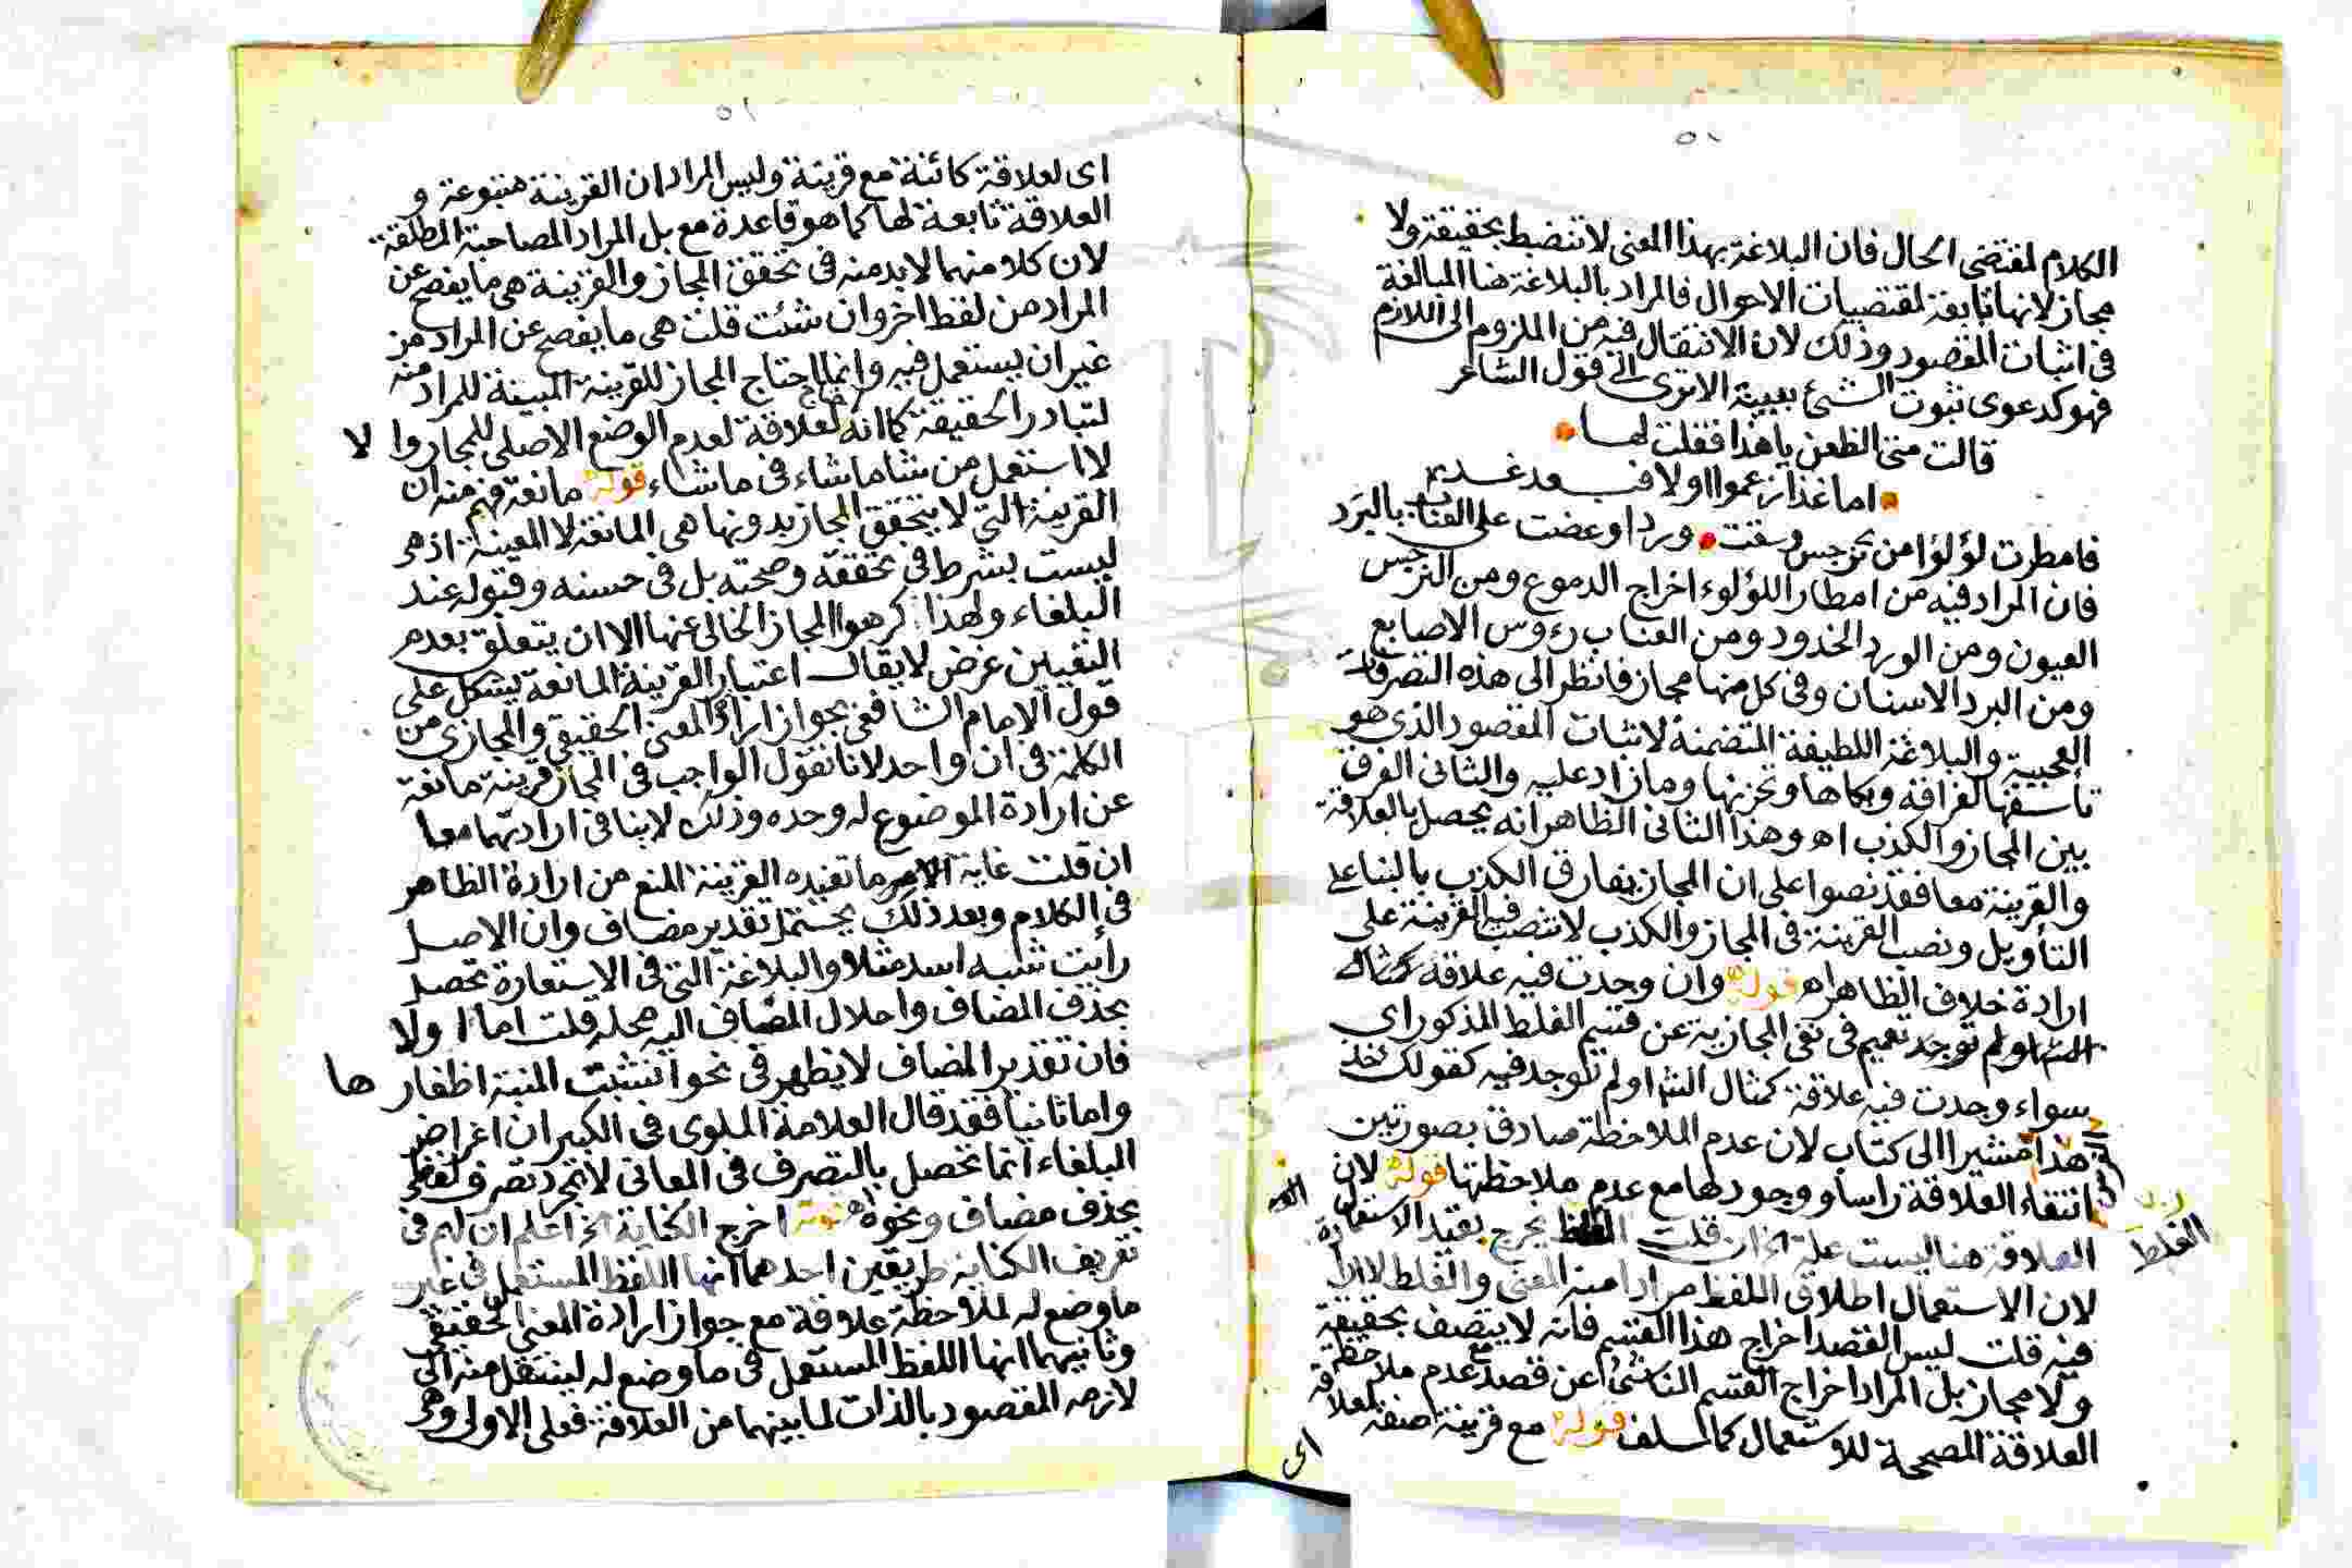 ٥١
الكلام لمقتضى الحال فان البلاغة بهذا المعنى لا تنضبط بحقيقة ولا
مجاز لانها تابعة لمقتضيات الاحوال فالمراد بالبلاغة هنا المبالغة
فى اثبات المقصود وذلك لان الانتقال فيه من الملزوم الى اللازم
فهو كدعوى ثبوت الشئ ببينة الا ترى الى قول الشاعر
قالت متى الظعن يا هذا فقلت لها
اما غدا زعموا او لا فبعد غد
فامطرت لؤلؤا من نرجس وسقت وردا وعضت على العناب بالبرد
فان المراد فيه من امطار اللؤلوء اخراج الدموع ومن النرجس
العيون ومن الورد الخدود ومن العناب رءوس الاصابع
ومن البرد الاسنان وفى كل منها مجاز فانظر الى هذه التصرفات
العجيبة والبلاغة اللطيفة المتضمنة لاثبات المقصود الذى هو
تأسفها لفراقه وبكاها وتحزنها وما زاد عليه والثانى الفرق
بين المجاز والكذب اه وهذا الثانى الظاهر انه يحصل بالعلاقة
والقرينة معا فقد نصوا على ان المجاز يفارق الكذب بالبناء على
التأويل ونصب القرينة فى المجاز والكذب لا تنصب فيه القرينة على
ارادة خلاف الظاهر اه قوله وان وجدت فيه علاقة كمثال
الش او لم توجد تعميم فى نفى المجازية عن قسم الغلط المذكور اى
سواء وجدت فيه علاقة كمثال الش او لم توجد فيه كقولك خذ
هذا مشيرا الى كتاب لان عدم الملاحظة صادق بصورتين
انتفاء العلاقة راسا ووجودها مع عدم ملاحظتها قوله لان
العلاقة هنا ليست علة الخ ان قلت يخرج بقيد الاستعمال
الغلط
لان الاستعمال اطلاق اللفظ مرادا منه المعنى والغلط لا
فيه قلت ليس القصد اخراج هذا القسم فانه لا يتصف بحقيقة
ولا مجاز بل المراد اخراج القسم الناشئ عن قصد مع عدم ملاحظة
العلاقة المصححة للاستعمال كما سلف قوله مع قرينة صفة لعلاقة
اى
٥١
اى لعلاقة كائنة مع قرينة وليس المراد ان القرينة متبوعة و
العلاقة تابعة لها كما هو قاعدة مع بل المراد المصاحبة المطلقة
لان كلا منهما لا بد منه فى تحقق المجاز والقرينة هى ما يفصح عن
المراد من لفظ اخر وان شئت قلت هى ما يفصح عن المراد من
غير ان يستعمل فيه وانما احتاج المجاز للقرينة المبينة للمراد منه
لتبادر الحقيقة كما انه احتاج لعلاقة لعدم الوضع الاصلى للمجاز والا
لا استعمل من شا ما شاء فى ما شاء قوله مانعة فهم منه ان
القرينة التى لا يتحقق المجاز بدونها هى المانعة لا المعينة اذ هى
ليست بشرط فى تحققه وصحته بل فى حسنه وقبوله عند
البلغاء ولهذا كرهوا المجاز الخالى عنها الا ان يتعلق بعدم
التعيين غرض لا يقال اعتبار القرينة المانعة يشكل على
قول الامام الشافعى بجواز ارادة المعنى الحقيقى والمجازى من
الكلمة فى ان واحد لانا نقول الواجب فى المجاز قرينة مانعة
عن ارادة الموضوع له وحده وذلك لا ينافى ارادتهما معا
ان قلت غاية الامر ما تفيده القرينة المنع من ارادة الظاهر
فى الكلام وبعد ذلك يحتمل تقدير مضاف وان الاصل
رايت شبيه اسد مثلا والبلاغة التى فى الاستعارة تحصل
بحذف المضاف واحلال المضاف اليه محله قلت اما اولا
فان تقدير المضاف لا يظهر فى نحو انشبت المنية اظفارها
واما ثانيا فقد قال العلامة الملوى فى الكبير ان اغراض
البلغاء انما تحصل بالتصرف فى المعانى لا بمجرد تصرف لفظى
بحذف مضاف ونحوه اه قوله اخرج الكناية الخ اعلم ان لهم فى
تعريف الكناية طريقين احدهما انها اللفظ المستعمل فى غير
ما وضع له لملاحظة علاقة مع جواز ارادة المعنى الحقيقى
وثانيهما انها اللفظ المستعمل فى ما وضع له لينتقل منه الى
لازمه المقصود بالذات لما بينهما من العلاقة فعلى الاولى وهى